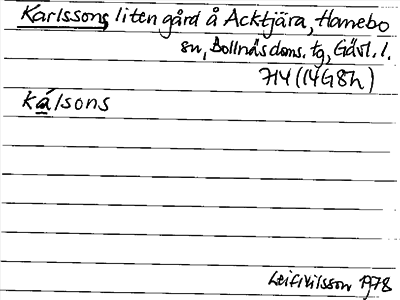 Karlssons, liten gård å Acktjära, Hanebo
sn, Bollnäs doms. tg, Gävl. l.
714 (14G8h)
kálsons
Leif Nilsson 1978